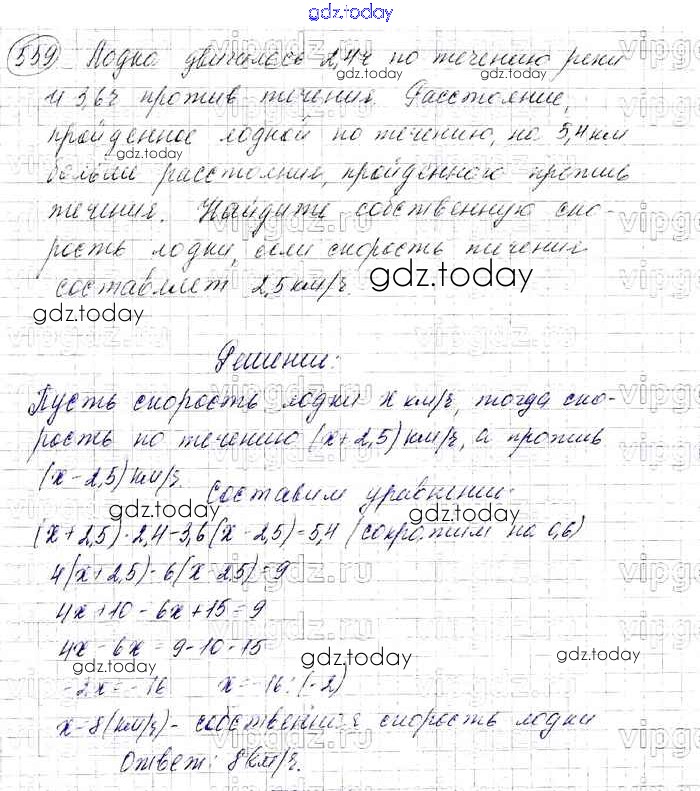 gdz.today
559 Лодка двигалась 2,4ч по течению реки
gdz.today
и 3,6ч против течения. Расстояние,
пройденное лодкой по течению, на 5,4 км
gdz.today
больше расстояния, пройденного против
течения. Найдите собственную ско-
рость лодки, если скорость течения
составляет 2,5 км/ч.
gdz.today
gdz.today
Решение:
Пусть скорость лодки x км/ч, тогда ско-
рость по течению (x+2,5) км/ч, а против
(x-2,5) км/ч.
Составим уравнение:
gdz.today
gdz.today
(x+2,5)·2,4-3,6(x-2,5)=5,4 (сократим на 0,6)
4(x+2,5)-6(x-2,5)=9
4x+10-6x+15=9
4x-6x=9-10-15
gdz.today
gdz.today
gdz.today
-2x=-16 x=-16:(-2)
x=8(км/ч)- собственная скорость лодки
Ответ: 8 км/ч.